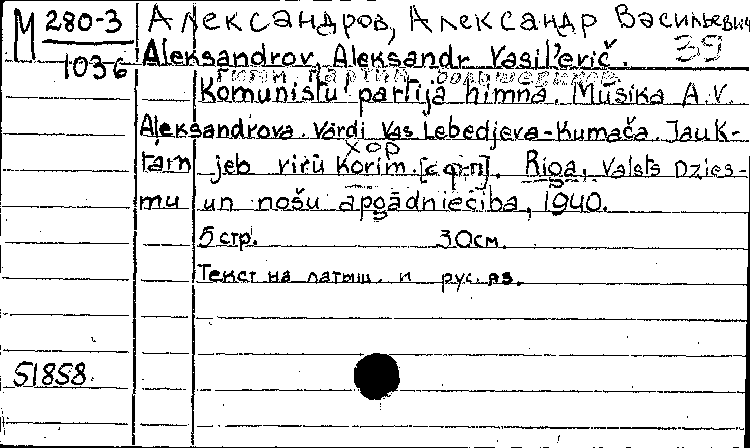 М 280-3 Александров, Александр Васильевич
1036 Aleksandrov, Aleksandr Vasil'evič. 39
гимн партии большевиков.
Komunistu partija himna. Mūsika A.V.
Aleksandrova. Vārdi Vas Lebedjeva-Kumača. Jauk-
хор
tam jeb vīru korim. [с ф-п]. Rīga, Valsts Dzies-
mu un nošu apgādniecība, 1940.
5 стр. 30см.
Текст на латыш. и рус. яз.
51858.